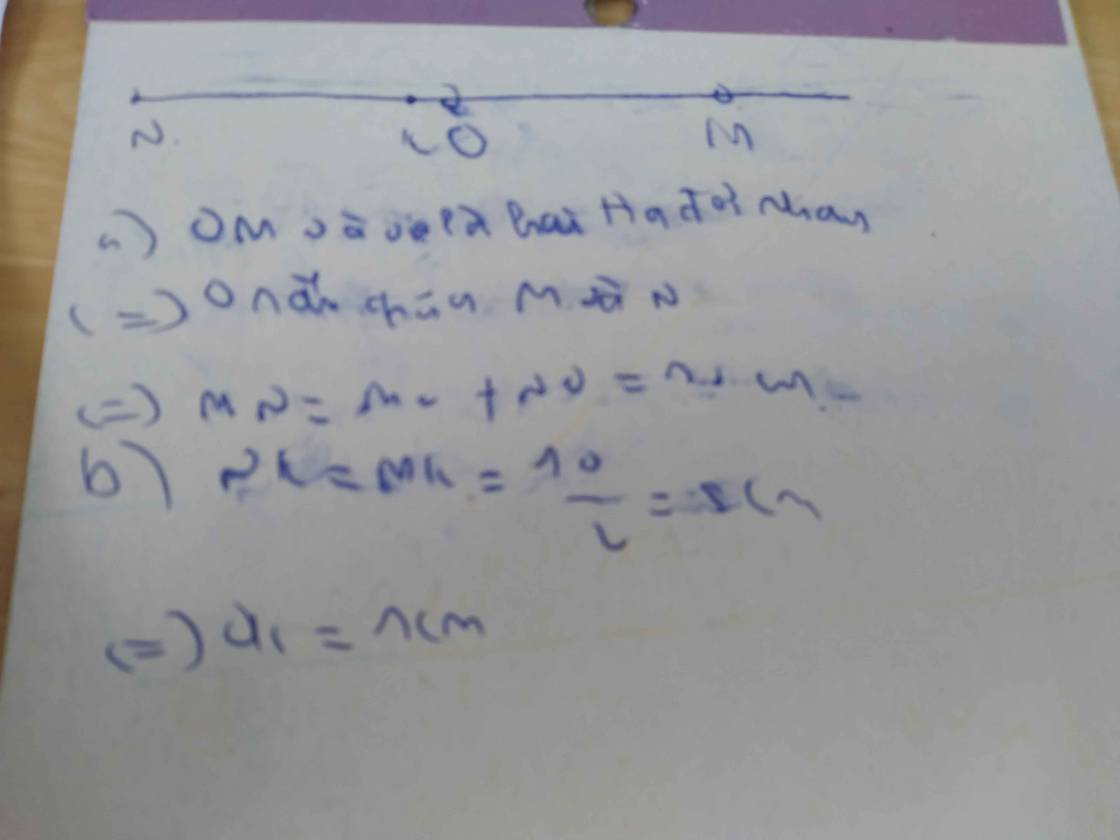 N K O M
a) OM và là hai tia đối nhau
(=) O nằm giữa M và N
(=) MN = MO + NO = 10 cm
b) NK = MK = 10/2 = 5cm
(=) OK = 1cm